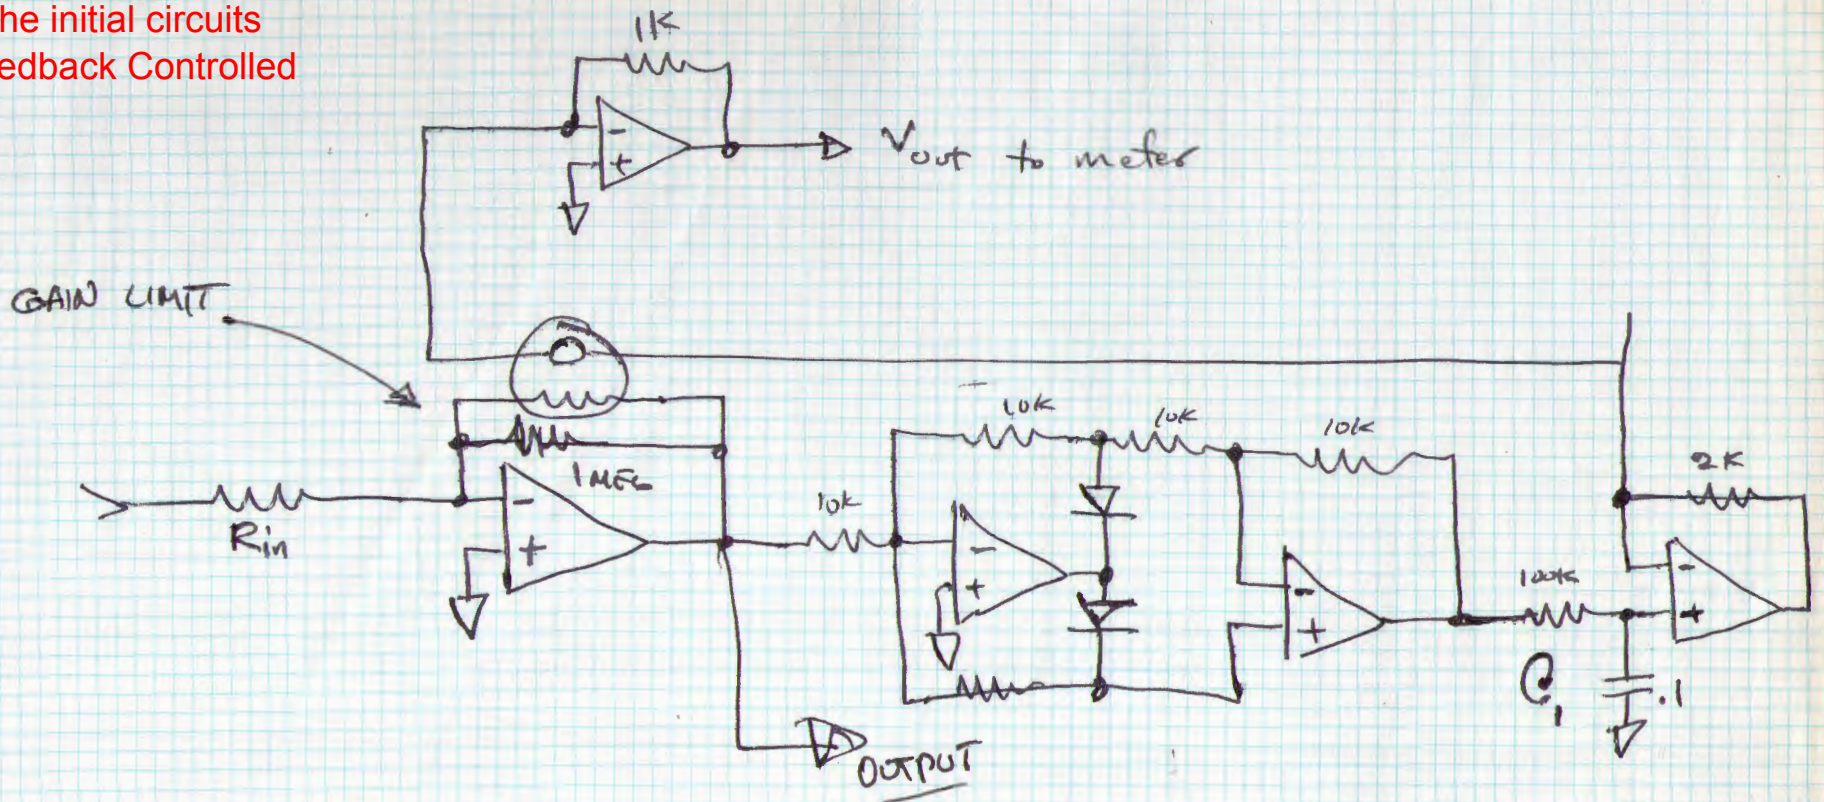 he initial circuits
edback Controlled
1K
-
+
Vout to meter
GAIN LIMIT
10K
10K
10K
2K
1MEG
Rin
-
+
10K
-
+
-
+
100K
-
+
C1
.1
OUTPUT